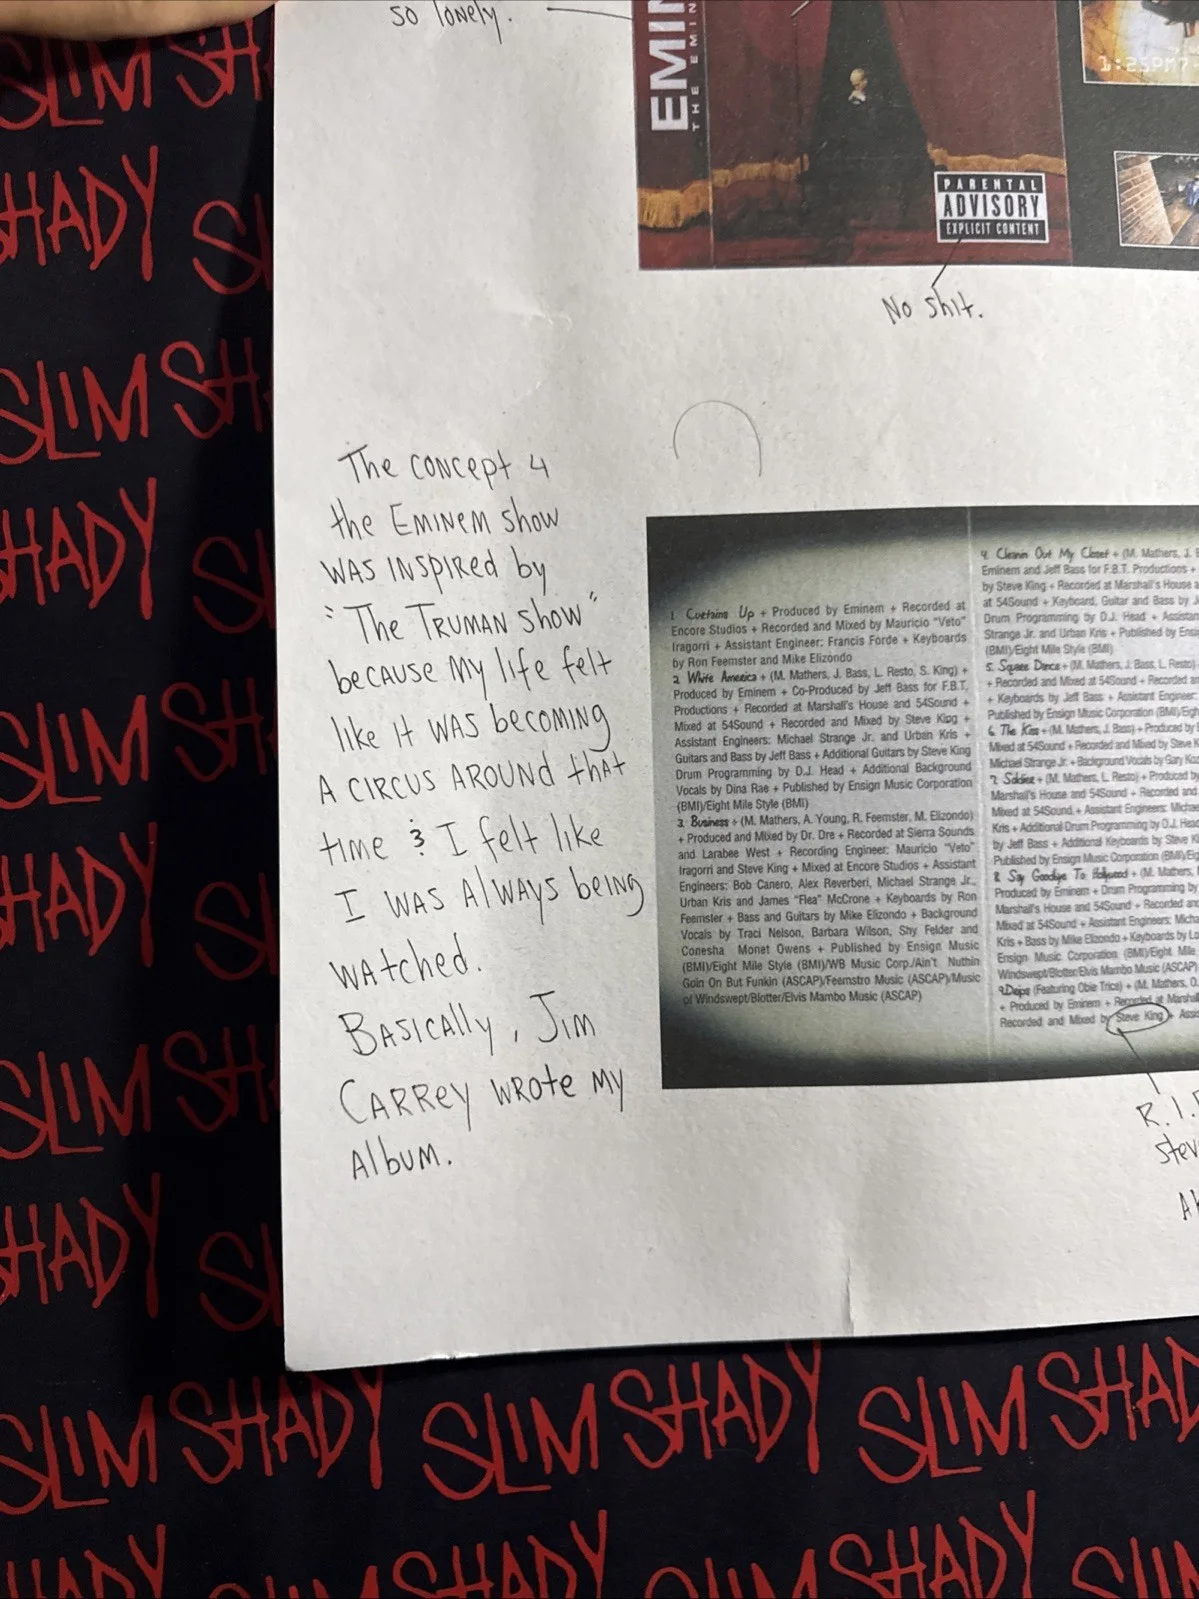 so lonely.
EMIN
THE EMIN
1:23PM
PARENTAL
ADVISORY
EXPLICIT CONTENT
No shit.
The concept 4
the Eminem show
was inspired by
"The Truman show"
because my life felt
like it was becoming
a circus around that
time & I felt like
I was always being
watched.
Basically, Jim
Carrey wrote my
album.
1. Curtains Up + Produced by Eminem + Recorded at
Encore Studios + Recorded and Mixed by Mauricio "Veto"
Iragorri + Assistant Engineer: Francis Forde + Keyboards
by Ron Feemster and Mike Elizondo
2. White America + (M. Mathers, J. Bass, L. Resto, S. King) +
Produced by Eminem + Co-Produced by Jeff Bass for F.B.T.
Productions + Recorded at Marshall's House and 54Sound +
Mixed at 54Sound + Recorded and Mixed by Steve King +
Assistant Engineers: Michael Strange Jr. and Urban Kris +
Guitars and Bass by Jeff Bass + Additional Guitars by Steve King
Drum Programming by D.J. Head + Additional Background
Vocals by Dina Rae + Published by Ensign Music Corporation
(BMI)/Eight Mile Style (BMI)
3. Business + (M. Mathers, A. Young, R. Feemster, M. Elizondo)
+ Produced and Mixed by Dr. Dre + Recorded at Sierra Sounds
and Larabee West + Recording Engineer: Mauricio "Veto"
Iragorri and Steve King + Mixed at Encore Studios + Assistant
Engineers: Bob Canero, Alex Reverberi, Michael Strange Jr.,
Urban Kris and James "Flea" McCrone + Keyboards by Ron
Feemster + Bass and Guitars by Mike Elizondo + Background
Vocals by Traci Nelson, Barbara Wilson, Shy Felder and
Conesha Monet Owens + Published by Ensign Music
(BMI)/Eight Mile Style (BMI)/WB Music Corp./Ain't Nuthin
Goin On But Funkin (ASCAP)/Feemstro Music (ASCAP)/Music
of Windswept/Blotter/Elvis Mambo Music (ASCAP)
4. Cleanin Out My Closet + (M. Mathers, J.
Eminem and Jeff Bass for F.B.T. Productions +
by Steve King + Recorded at Marshall's House a
at 54Sound + Keyboard, Guitar and Bass by J
Drum Programming by D.J. Head + Assistan
Strange Jr. and Urban Kris + Published by Ensi
(BMI)/Eight Mile Style (BMI)
5. Square Dance + (M. Mathers, J. Bass, L. Resto)
+ Recorded and Mixed at 54Sound + Recorded an
+ Keyboards by Jeff Bass + Assistant Engineer
Published by Ensign Music Corporation (BMI)/Eigh
6. The Kiss + (M. Mathers, J. Bass) + Produced by
Mixed at 54Sound + Recorded and Mixed by Steve
Michael Strange Jr. + Background Vocals by Gary Koz
7. Soldier + (M. Mathers, L. Resto) + Produced by
Marshall's House and 54Sound + Recorded and
Mixed at 54Sound + Assistant Engineers: Micha
Kris + Additional Drum Programming by D.J. Head
by Jeff Bass + Additional Keyboards by Steve Ki
Published by Ensign Music Corporation (BMI)/Ei
8. Say Goodbye To Hollywood + (M. Mathers,
Produced by Eminem + Drum Programming by
Marshall's House and 54Sound + Recorded and
Mixed at 54Sound + Assistant Engineers: Micha
Kris + Bass by Mike Elizondo + Keyboards by Lo
Ensign Music Corporation (BMI)/Eight Mile
Windswept/Blotter/Elvis Mambo Music (ASCAP)
9. Drips (Featuring Obie Trice) + (M. Mathers, O.
+ Produced by Eminem + Recorded at Marshal
Recorded and Mixed by Steve King + Assis
R.I.
Stev
SLIM SHADY
SHADY
SLIM SHADY
SHADY
SLIM SHADY
SHADY
SLIM SHADY
SHADY
SLIM SHADY SLIM SHADY SLIM SHAD